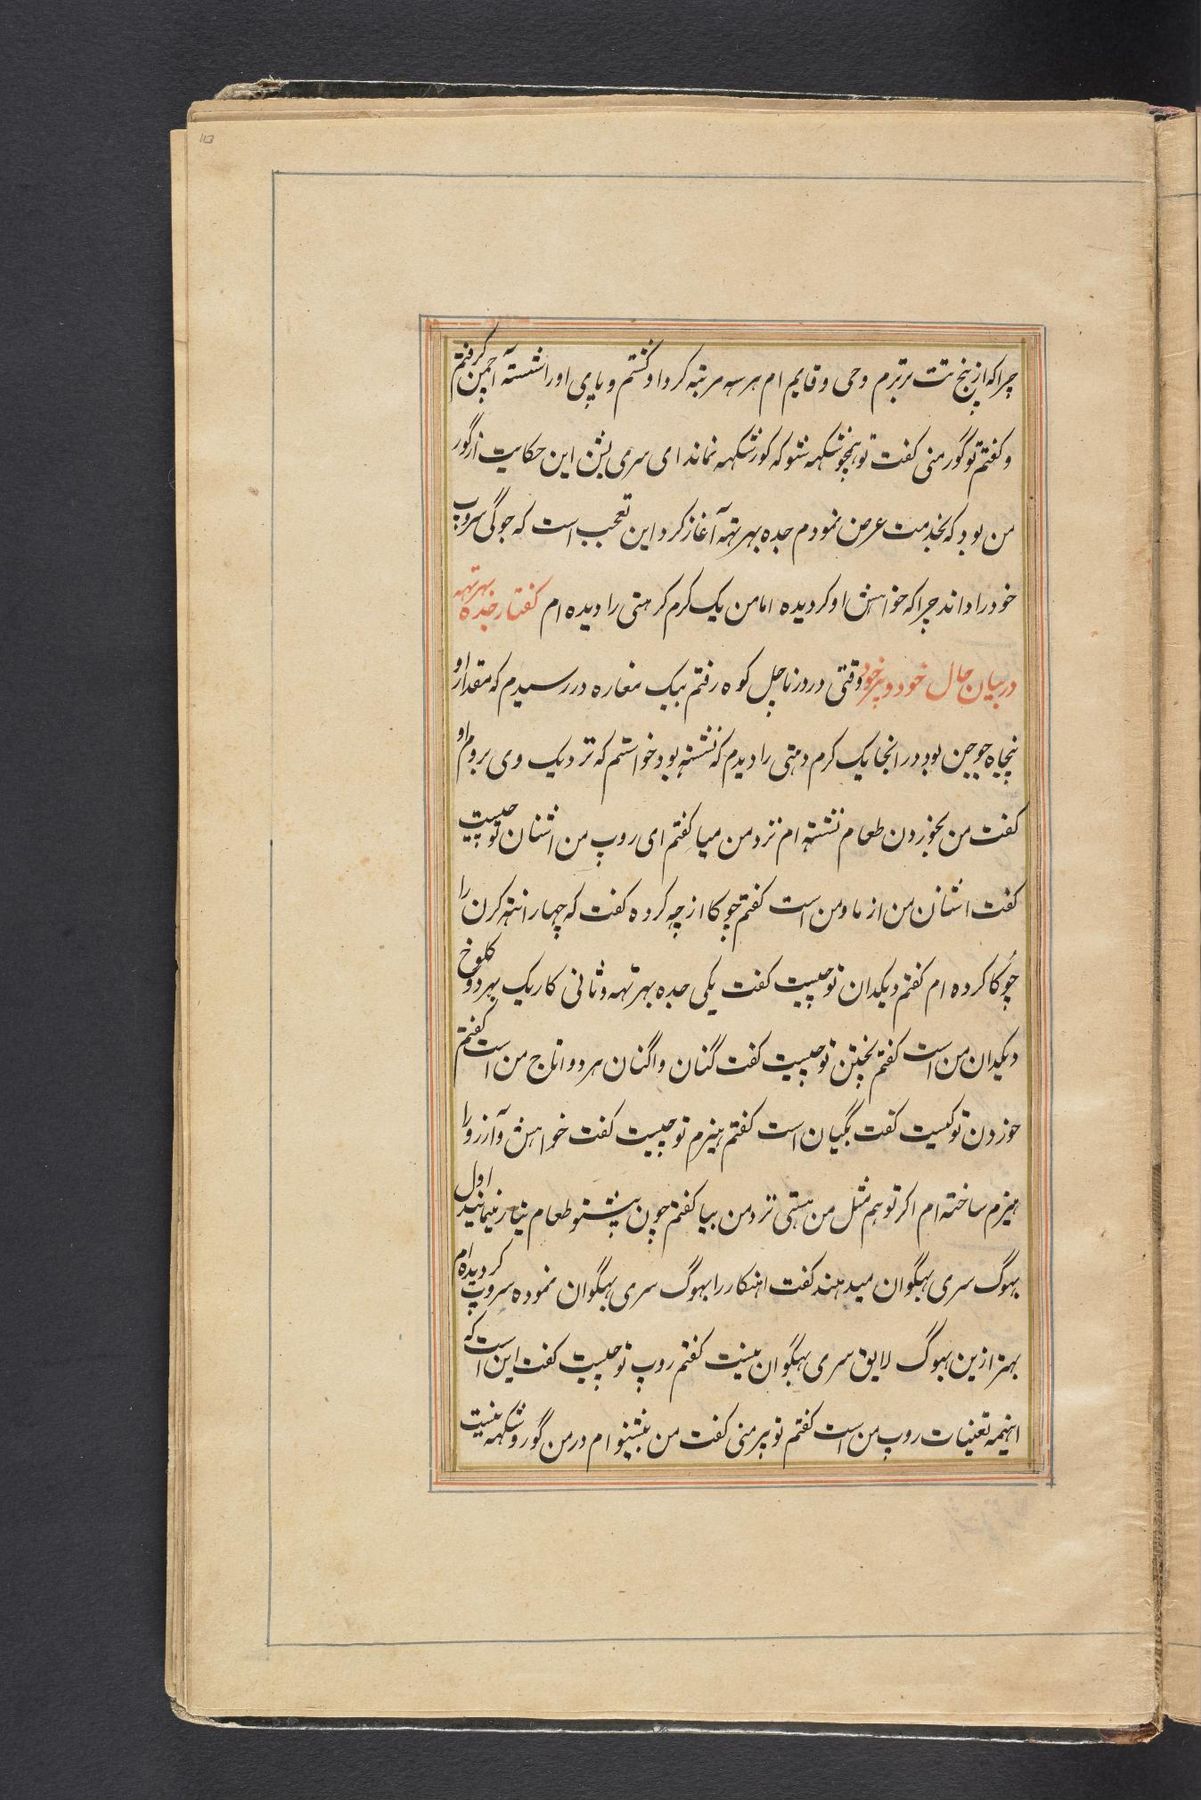 چراکه از پنج تت برترم وحی و قایم ام هر سه مرتبه کرد او کشتم و پای او را شسته آچمن کرفتم
و کفتم تو گور منی کفت تو همچو شکهه شو که کور شکهه نماند ای سری بشن این حکایت از گور
من بود که بخدمت عرض نمودم جده بهرتهه آغاز کرد این تعجب است که جوگی سروپ
خود را داند چراکه خواهش او کردیده اما من یک کرم کرهتی را دیده ام کفتار جده بهرتهه
در بیان حال خود و پیر خود وقتی در درناچل کوه رفتم بیک مغاره در رسیدم که مقدار او
پنجاه جوجن بود در انجا یک کرم دهتی را دیدم که نشسته بود خواستم که نزدیک وی بروم او
کفت من بخوردن طعام نشسته ام نزد من میا کفتم ای روپ من اشنان تو چیست
کفت اشنان من از ما و من است کفتم چوکا از چه کرده کفت که چهار انته کرن را
چوکا کرده ام کفتم دیکدان تو چیست کفت یکی جده بهرتهه و ثانی کاریک بهر دو کلوخ
دیکدان من است کفتم پختن تو چیست کفت گنان و اگنان هر دو اناج من است کفتم
خوردن تو کیست کفت بگیان است کفتم هیزم تو چیست کفت خواهش و آرزو را
هیزم ساخته ام اکر تو هم مثل من هستی نزد من بیا کفتم چون بیشنو طعام تیار مینمانید اول
بهوگ سری بهگوان میدهند کفت اهنکار را بهوگ سری بهگوان نموده سروپ کردیده ام
بهتر ازین بهوگ لایق سری بهگوان نیست کفتم روپ تو چیست کفت این است که
اینهمه تعینات روپ من است کفتم تو پیر منی کفت من بیشنو ام در من گور و شکهه نیست